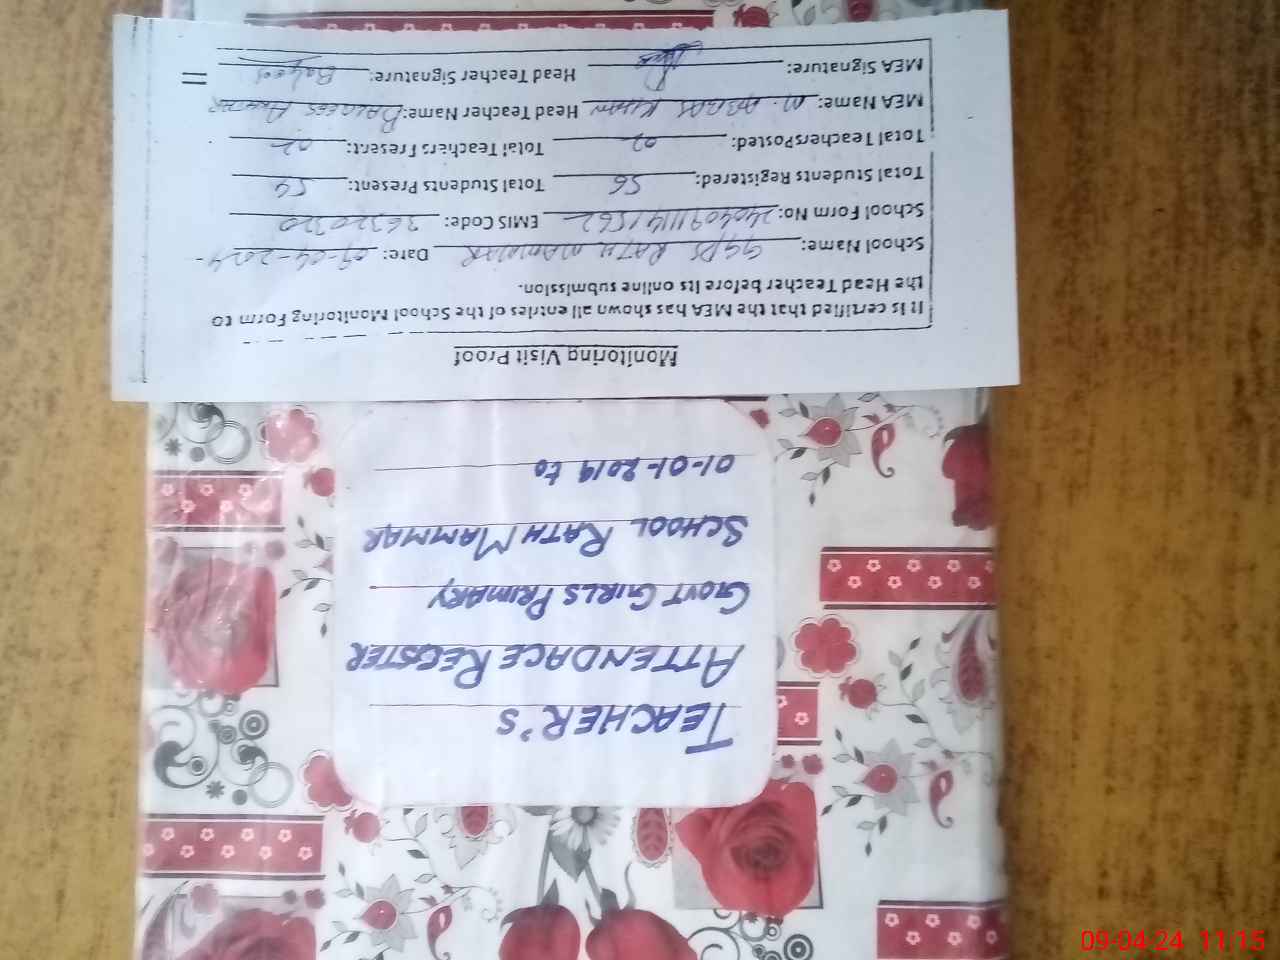 Monitoring Visit Proof
It is certified that the MEA has shown all entries of the School Monitoring Form to
the Head Teacher before its online submission.
School Name: GGPS RATH MAMMAR Date: 09-04-2024
School Form No: EMIS Code: 36320320
Total Students Registered: 56 Total Students Present: 54
Total Teachers Posted: 02 Total Teachers Present: 02
MEA Name: M. ABBAS KHAN Head Teacher Name: BALQEES AKHTAR
MEA Signature: Head Teacher Signature: Balqees
TEACHER'S
ATTENDACE REGISTER
GOVT GIRLS PRIMARY
SCHOOL RATH MAMMAR
01-01-2019 to
09-04-24 11:15